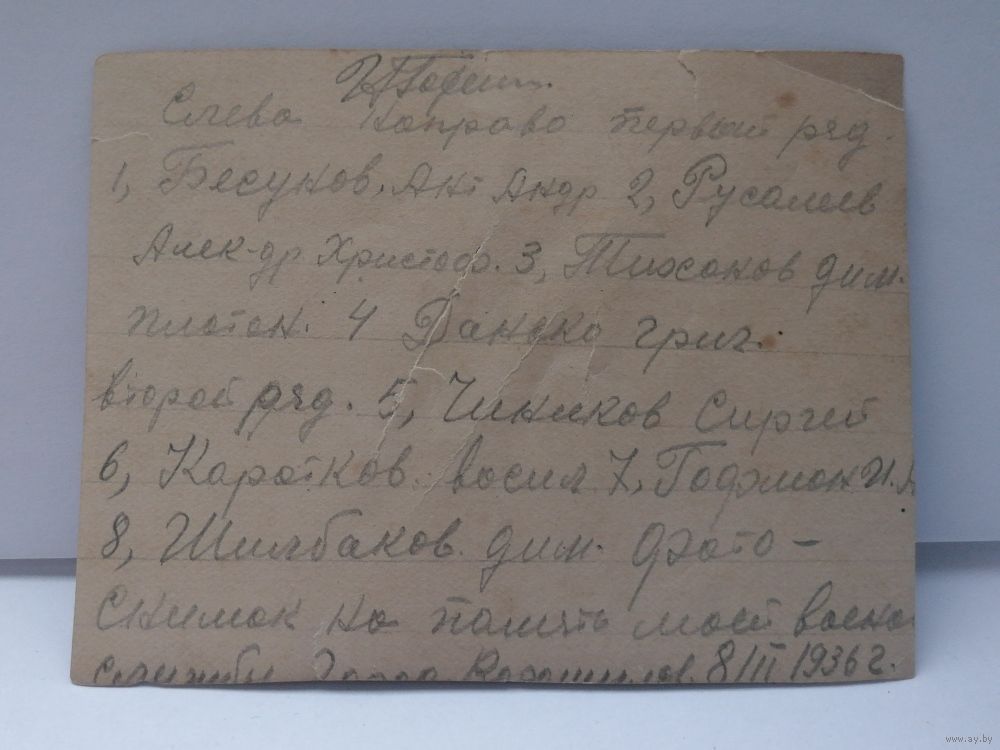 Слева направо первый ряд.
1, Бесунов. Ант Андр 2, Русалеев
Алек-др Христоф. 3, Тихонов дим.
платон. 4 Данско григ.
второй ряд. 5, Чиников Сиргей
6, Каротков. васил 7, Гофман И. А
8, Шилбаков. дим. фото-
Снимок на память моей воено
службы город Ворошилов. 8/III 1936 г.
www.ay.by